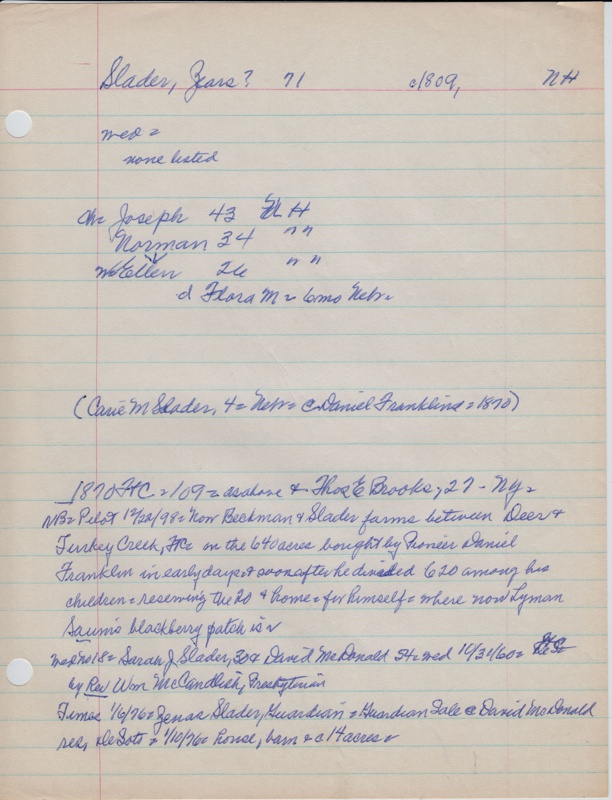 Slader, Zears? 71 c1809, NH
med =
none listed
ch = Joseph 43 NH
Norman 34 " "
w Ellen 26 " "
d Flora M = 6mo Nebr =
(Carie M Slader, 4 = Nebr = c Daniel Franklins = 1870)
1870 = 109 = as above & Thos E Brooks, 27 - NY =
NB = Pilot 12/20/98 = Now Beckman & Slader farms between Deer &
Turkey Creek, = on the 640 acres bought by Pioneer Daniel
Franklin in early days & soon after he divided 620 among his
children = reserving the 20 & home = for himself = where now Lyman
Saums blackberry patch is
med no 18 = Sarah J. Slader, 30 & David McDonald 54 = med 10/31/60 =
by Rev Wm McCandlish, Presbyterian
Times 1/6/76 = Zenas Slader, Guardian = Guardian Sale c David McDonald
res, DeSoto = 1/10/76 = house, barn & c 14 acres